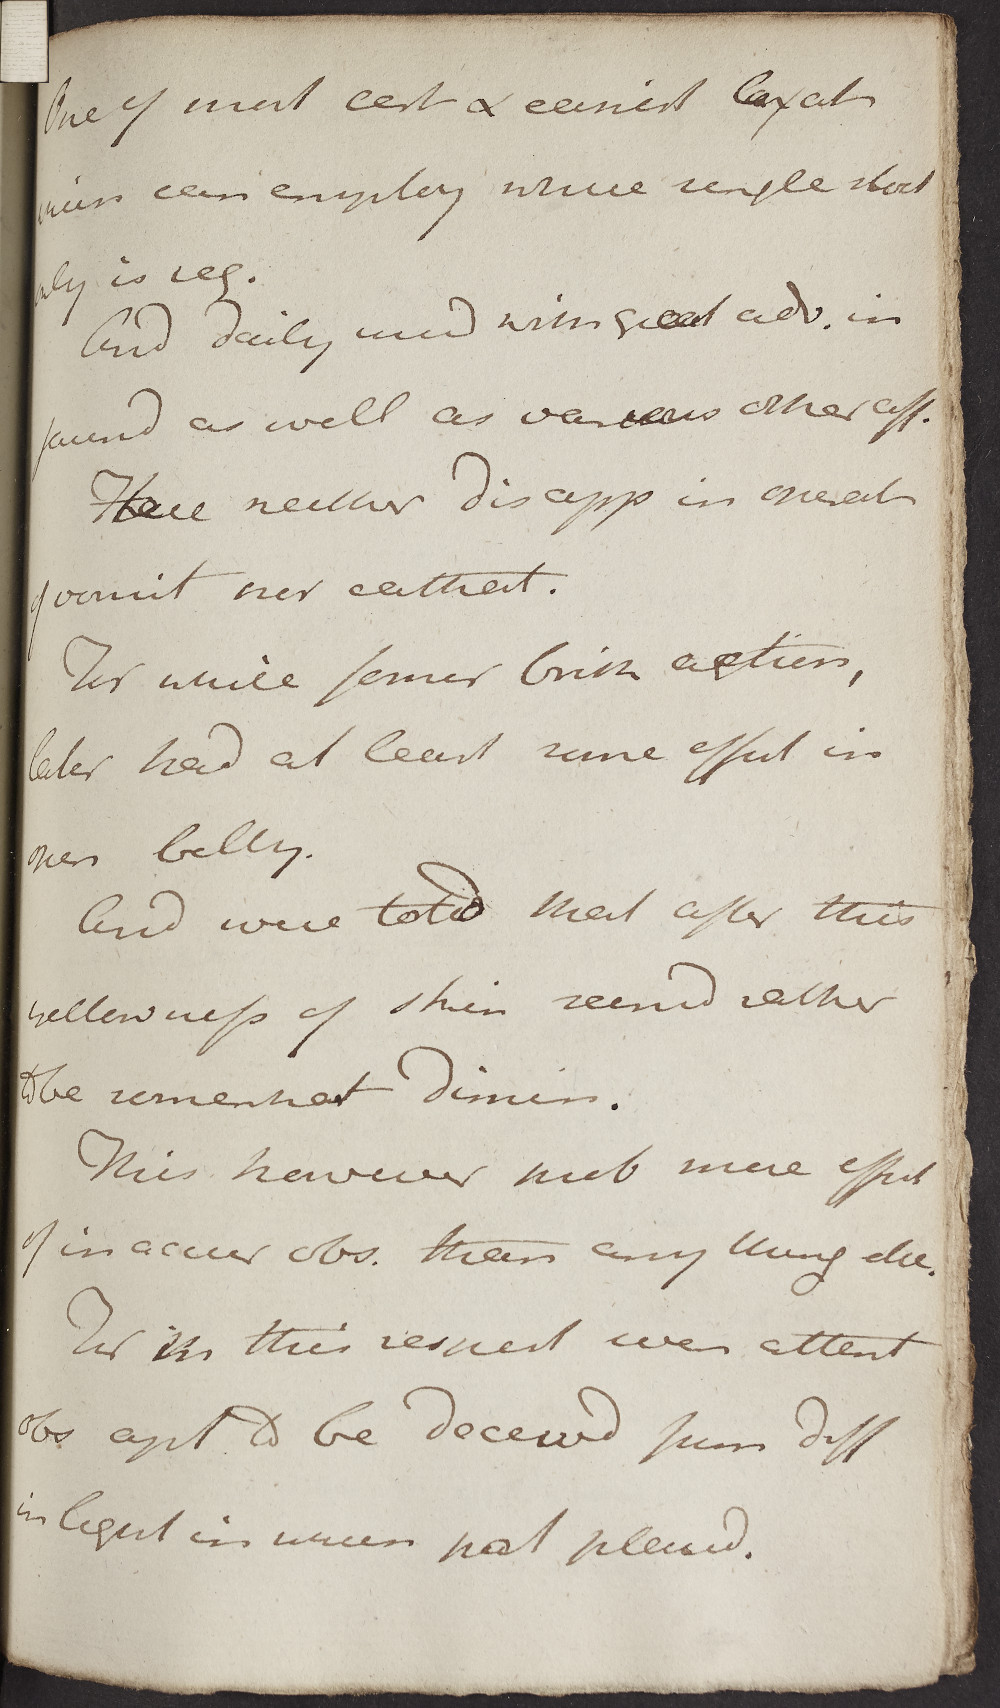 One of most cert & easiest laxat
which can employ where single stool
only is req.
And daily used with great adv. in
jaund as well as various other aff.
Here neither disapp in operat
of vomit nor cathart.
For while former brisk action,
later had at least some effect in
open belly.
And were told that after this
yellowness of skin seem'd rather
to be somewhat dimin.
This however prob more effect
of inaccur obs. than any thing else.
For in this respect even attent
obs apt to be deceivd from diff
in light in which pat placed.